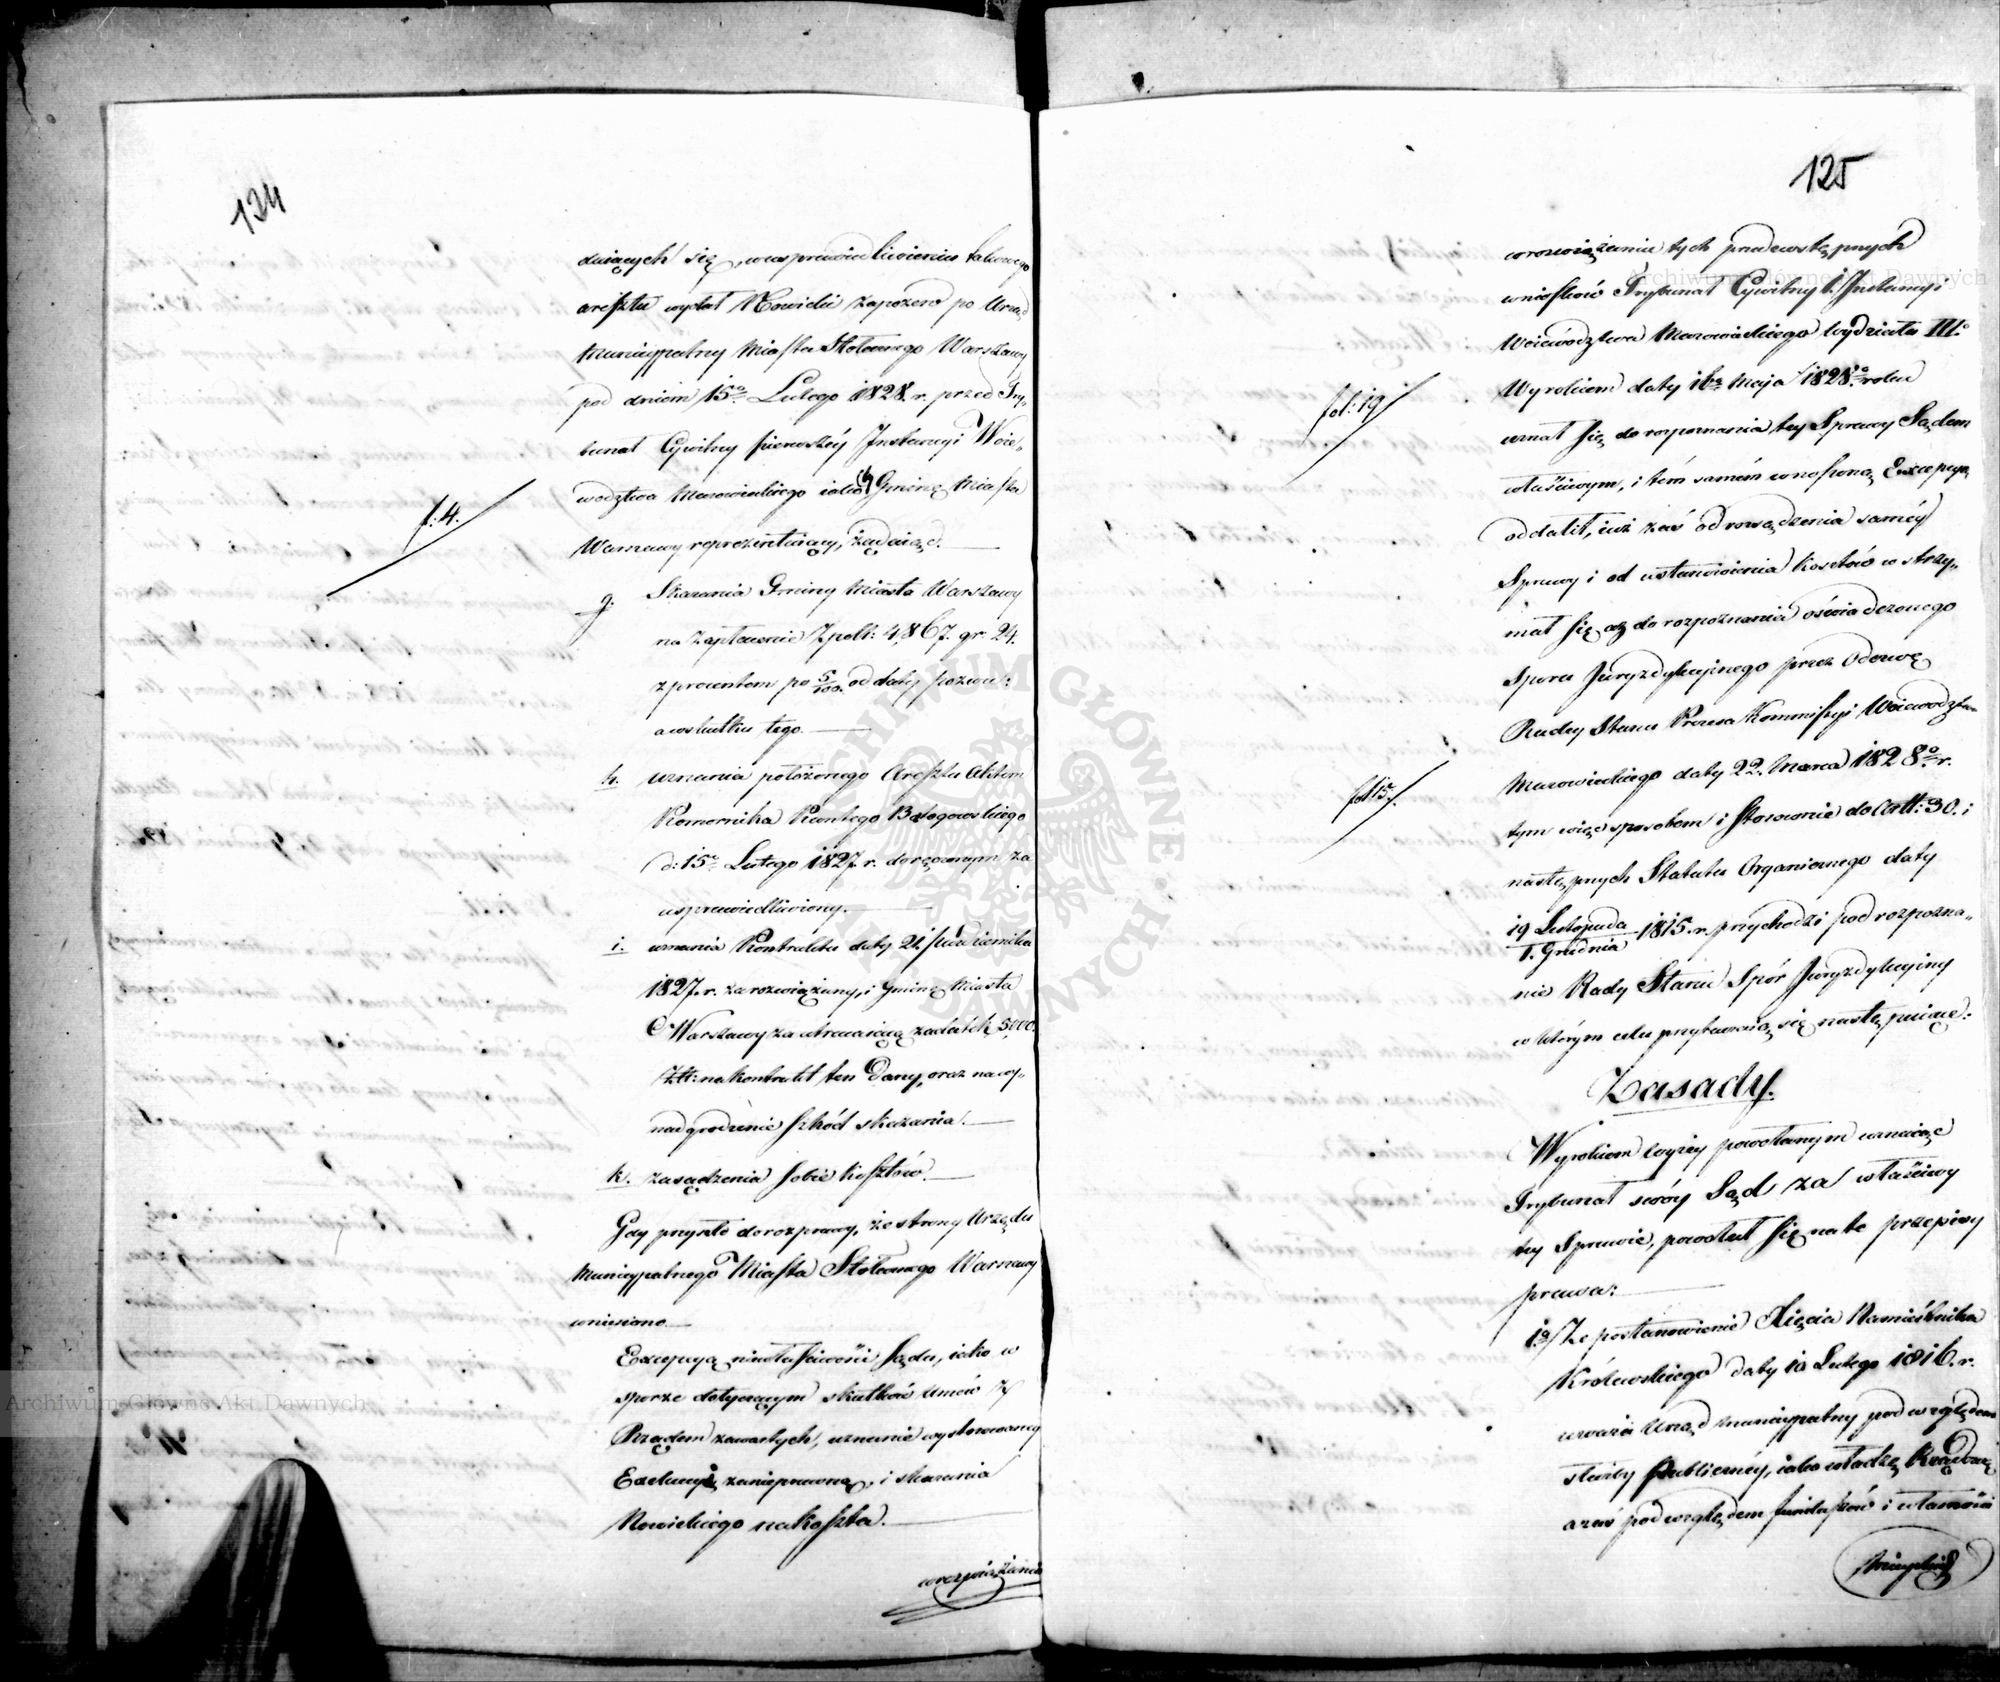 124
duiących się, w usprawiedliwieniu takowego
aresztu wydał Nowicki zapozew po Urząd
Municypalny Miasta Stołecznego Warszawy
pod dniem 15º Lutego 1828. r. przed Try„
bunał Cywilny pierwszéy Instancyi Woie„
wodztwa Mazowieckiego iako Gminę Miasta
Warszawy reprezentuiący, żądaiąc.
f: 4.
g. Skazania Gminy Miasta Warszawy
na zapłacenie Zpolt: 4,867. gr. 24.
z procentem po 5/100. od daty pozwu:
a w skutku tego.
h. uznania położonego Aresztu Aktem
Komornika Bałogowskiego
d: 15º Lutego 1827. r. doręczonym za
usprawiedliwiony.
i. uznania Kontraktu daty 21. Października
1827. r. za rozwiązany, i Gminę Miasta
Warszawy za utracaiącą zadatek 5,000.
Złt: na kontrakt ten dany, oraz na wy„
nadgrodzenie szkód skazania.
k. zasądzenia sobie kosztów.
Gdy przyszło do rozprawy, ze strony Urzędu
Municypalnego Miasta Stołecznego Warszawy
wniesiono
Excepcyą niewłaściwości Sądu, iako w
sporze dotyczącym skutków Umów z
Rządem zawartych, uznanie wystosowaney
za nieprawną, i skazania
Nowickiego na koszta.
w rozwiązaniu
125
w rozwiązaniu tych przedwstępnych
wniosków Trybunał Cywilny I. Instancyi
Woiewództwa Mazowieckiego Wydziału III.º
Wyrokiem daty 16º Maja 1828.º roku
fol: 19
uznał się do rozpoznania tey Sprawy Sądem
właściwym, i tém samém wnoszoną Excepcyą
oddalił, iuż zaś od rozsądzenia saméy
Sprawy i od ustanowienia kosztów wstrzy„
mał się aż do rozpoznania oświadczonego
Sporu Juryzdykcyinego przez Odezwę
Radcy Stanu Prezesa Kommissyi Woiewodztwa
Mazowieckiego daty 22. Marca 1828º r.
fol 15.
tym więc sposobem i stosownie do Artt: 30. i
następnych Statutu Organicznego daty
19 Listopada / 1. Grudnia 1815. r. przychodzi pod rozpozna„
nie Rady Stanu Spór Juryzdykcyiny
w którym celu przytaczaią się następuiące:
Zasady.
Wyrokiem wyżey powołanym uznaiąc
Trybunał swóy Sąd za właściwy
tey Sprawie, powołał się na te przepisy
prawa:
1º/ Ze postanowienie Xięcia Namiestnika
Królewskiego daty 10 Lutego 1816. r.
uważa Urząd Municypalny pod względem
służby Publicznéy, iako władzę Rządową
a zaś pod względem funduszów i własności
Archiwum Główne Akt Dawnych
Archiwum Główne Akt Dawnych
ARCHIWUM GŁÓWNE AKT DAWNYCH